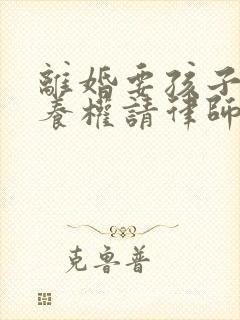 離婚要孩子
養權請律師
克魯普